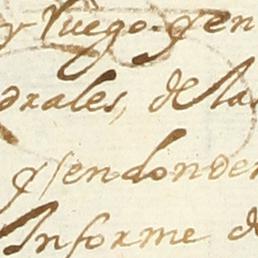 y luego y en
drales, de la
y en donde
Informe d